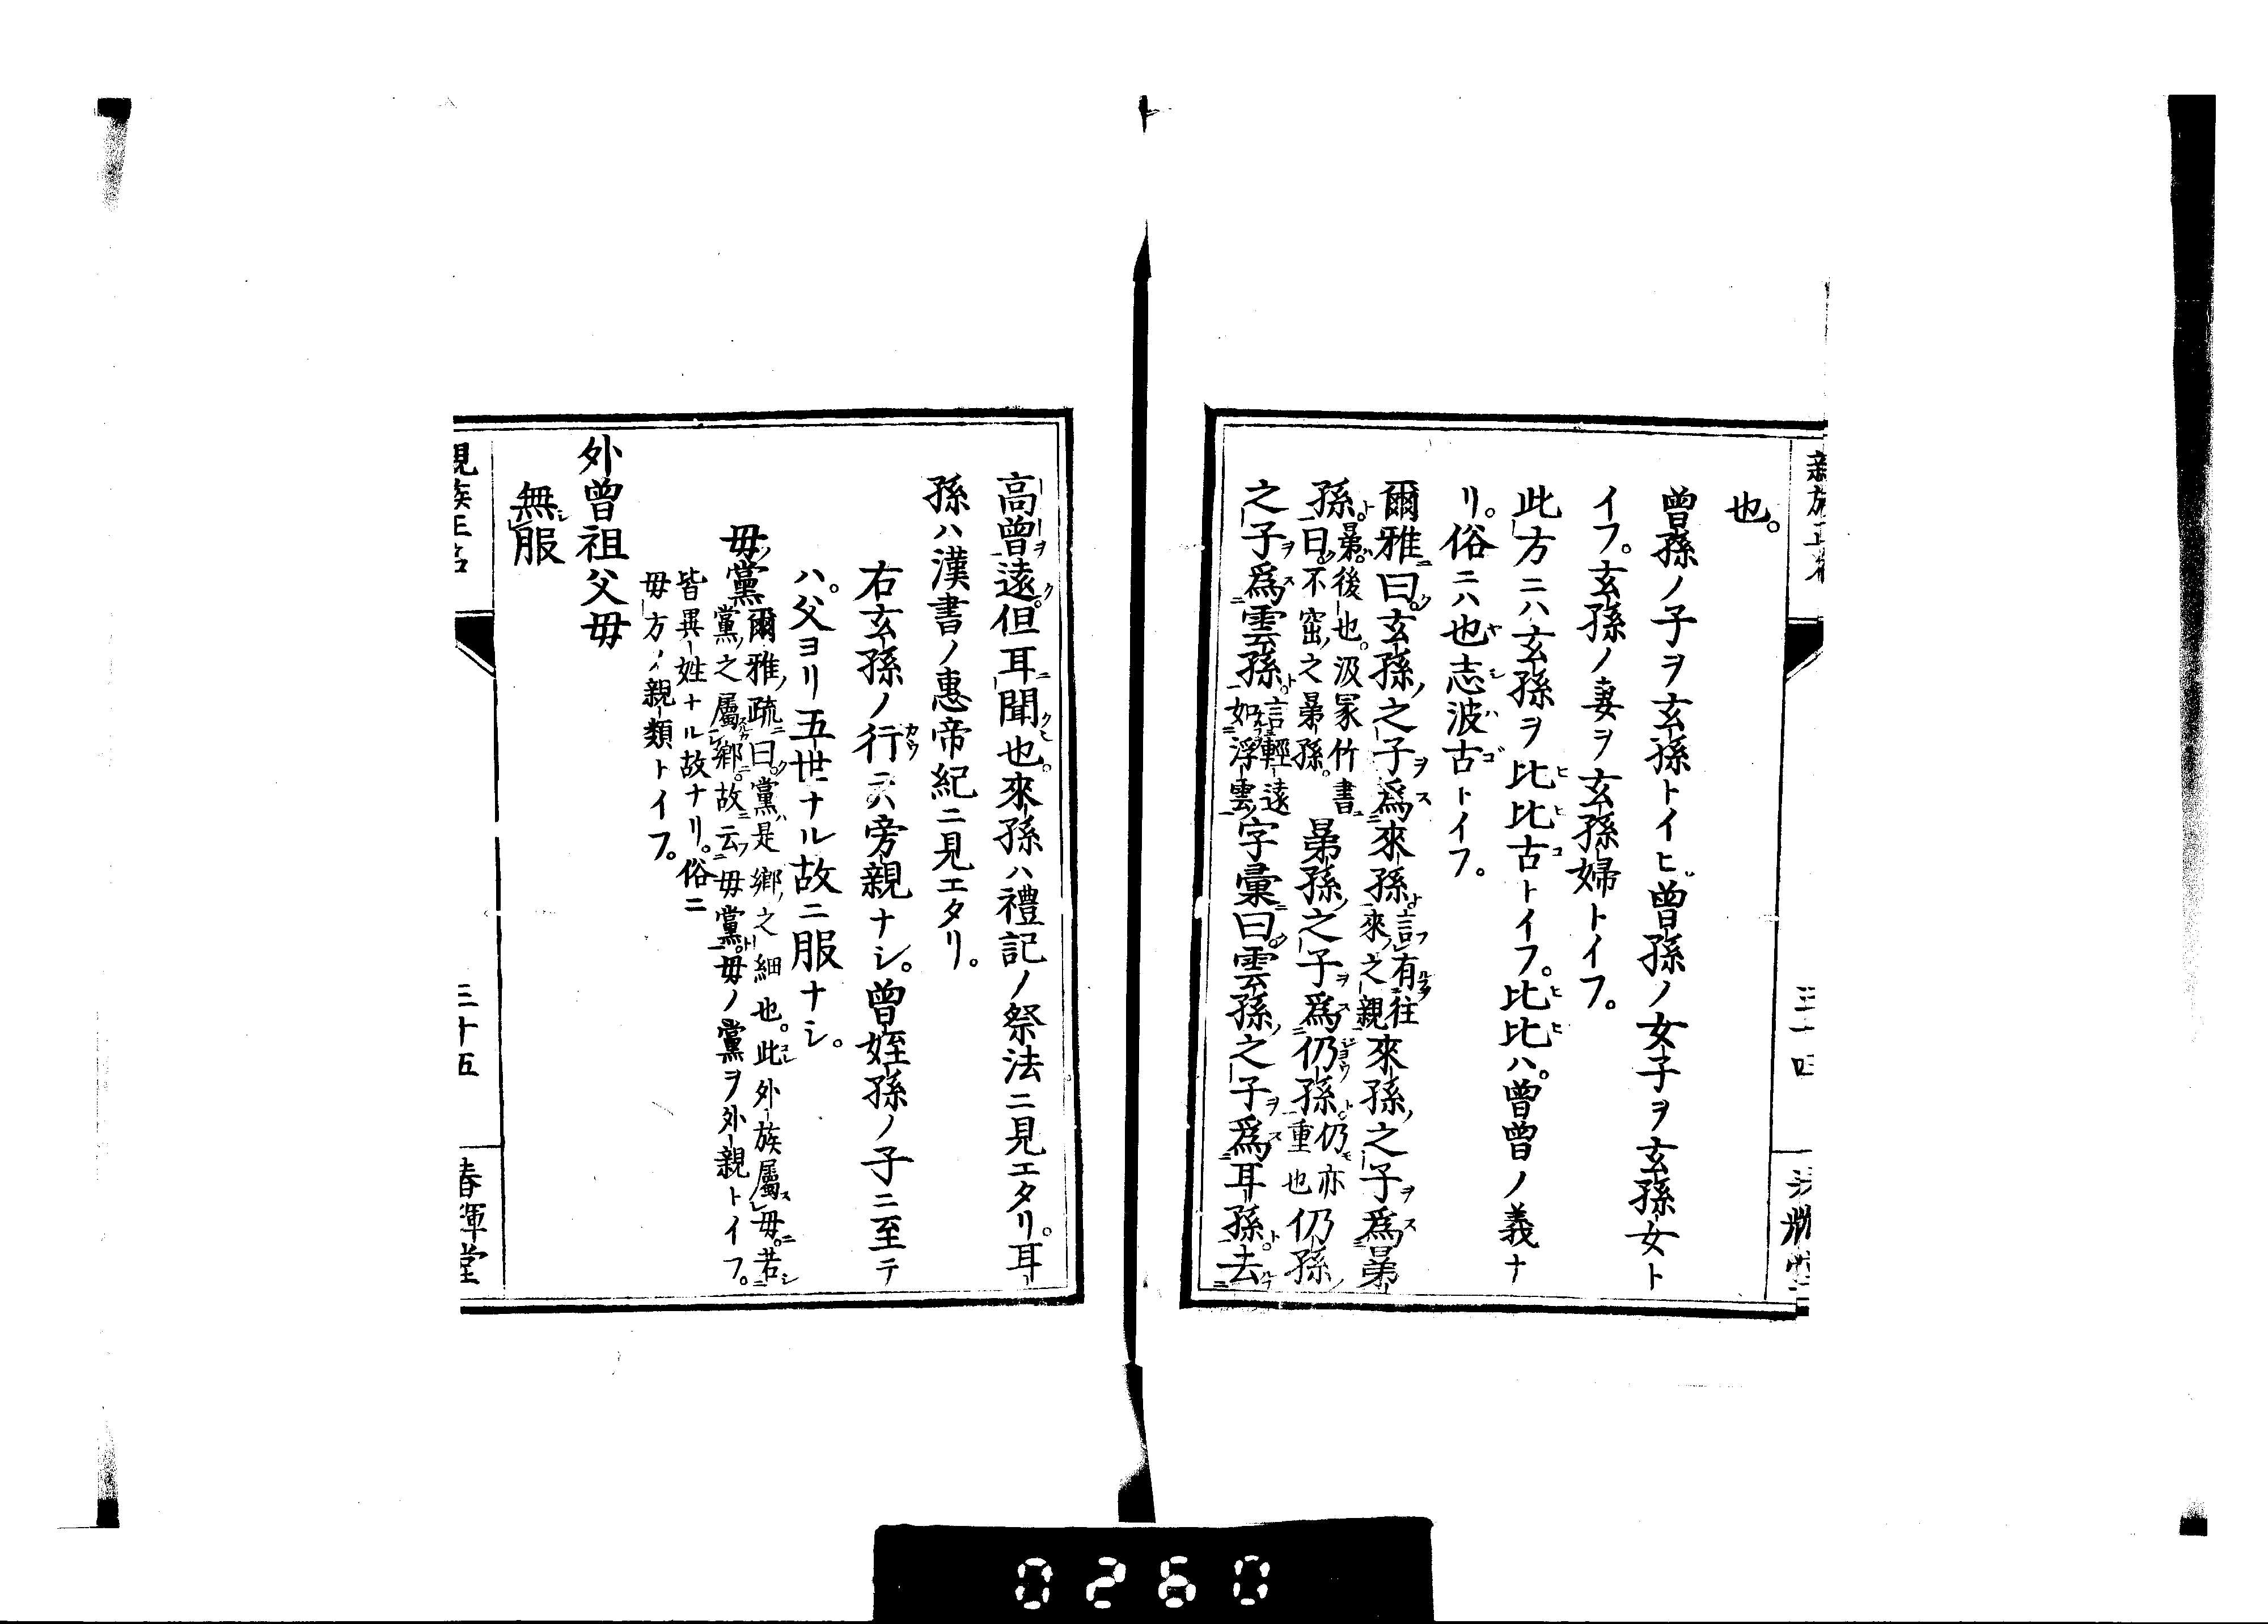 也。
曾孫ノ子ヲ玄孫トイヒ曾孫ノ女子ヲ玄孫女ト
イフ。玄孫ノ妻ヲ玄孫婦トイフ。
此方ニハ玄孫ヲ比比古トイフ。比比ハ。曾曾ノ義ナ
リ。俗ニハ也志波古トイフ。
爾雅曰。玄孫之子爲來孫言有往來之親來孫之子爲晜
孫晜。後也。汲冢竹書曰不窋之晜孫。晜孫之子爲仍孫仍亦重也仍孫
之子爲雲孫言輕遠如浮雲字彙曰。雲孫之子爲耳孫。去
高曾遠。但耳聞也。來孫ハ禮記ノ祭法ニ見エタリ。耳
孫ハ漢書ノ惠帝紀ニ見エタリ。
右玄孫ノ行ニハ旁親ナシ。曾姪孫ノ子ニ至テ
ハ。父ヨリ五世ナル故ニ服ナシ。
母黨爾雅疏曰。黨是鄉之細也。此外族屬母。若
黨之屬鄉。故云母黨。母ノ黨ヲ外親トイフ。
皆異姓ナル故ナリ。俗ニ
母方ノ親類トイフ。
外曾祖父母
無服
親族正名
三十五
春暉堂
0260